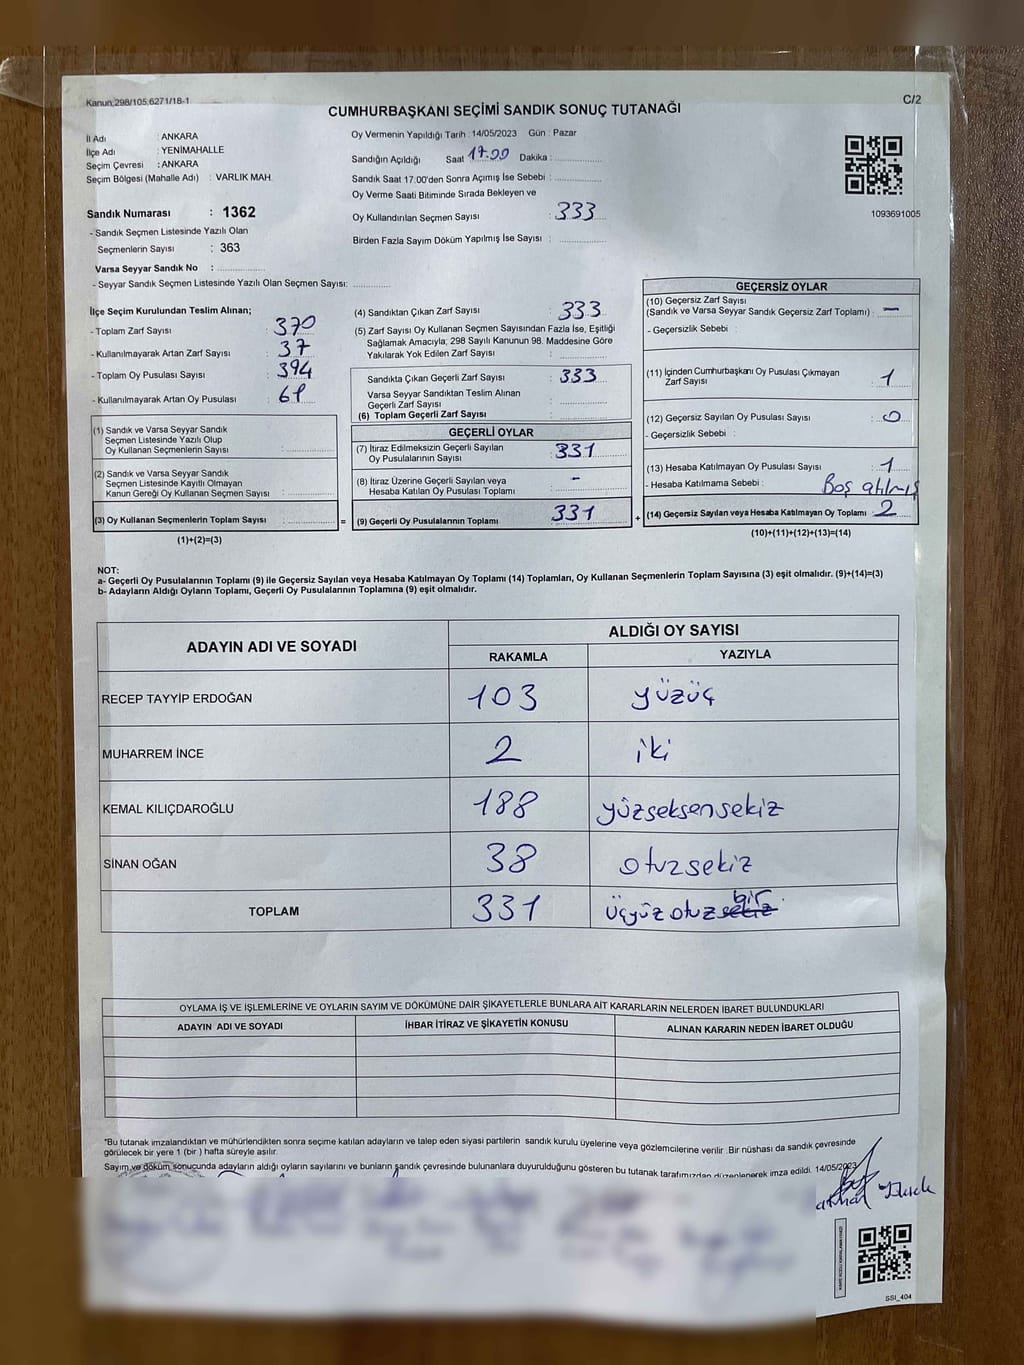 Kanun;298/105,6271/18-1
C/2
CUMHURBAŞKANI SEÇİMİ SANDIK SONUÇ TUTANAĞI
İl Adı : ANKARA
İlçe Adı : YENİMAHALLE
Seçim Çevresi : ANKARA
Seçim Bölgesi (Mahalle Adı) : VARLIK MAH.
Sandık Numarası : 1362
- Sandık Seçmen Listesinde Yazılı Olan
Seçmenlerin Sayısı : 363
Varsa Seyyar Sandık No :
- Seyyar Sandık Seçmen Listesinde Yazılı Olan Seçmen Sayısı:
Oy Vermenin Yapıldığı Tarih : 14/05/2023 Gün : Pazar
Sandığın Açıldığı Saat 17.00 Dakika :
Sandık Saat 17.00'den Sonra Açımış İse Sebebi :
Oy Verme Saati Bitiminde Sırada Bekleyen ve
Oy Kullandırılan Seçmen Sayısı : 333
Birden Fazla Sayım Döküm Yapılmış İse Sayısı :
1093691005
İlçe Seçim Kurulundan Teslim Alınan;
- Toplam Zarf Sayısı : 370
- Kullanılmayarak Artan Zarf Sayısı : 37
- Toplam Oy Pusulası Sayısı : 394
- Kullanılmayarak Artan Oy Pusulası : 61
(1) Sandık ve Varsa Seyyar Sandık
Seçmen Listesinde Yazılı Olup
Oy Kullanan Seçmenlerin Sayısı :
(2) Sandık ve Varsa Seyyar Sandık
Seçmen Listesinde Kayıtlı Olmayan
Kanun Gereği Oy Kullanan Seçmen Sayısı :
(3) Oy Kullanan Seçmenlerin Toplam Sayısı : =
(1)+(2)=(3)
(4) Sandıktan Çıkan Zarf Sayısı : 333
(5) Zarf Sayısı Oy Kullanan Seçmen Sayısından Fazla İse, Eşitliği
Sağlamak Amacıyla; 298 Sayılı Kanunun 98. Maddesine Göre
Yakılarak Yok Edilen Zarf Sayısı :
Sandıkta Çıkan Geçerli Zarf Sayısı : 333
Varsa Seyyar Sandıktan Teslim Alınan
Geçerli Zarf Sayısı :
(6) Toplam Geçerli Zarf Sayısı :
GEÇERLİ OYLAR
(7) İtiraz Edilmeksizin Geçerli Sayılan
Oy Pusulalarının Sayısı : 331
(8) İtiraz Üzerine Geçerli Sayılan veya
Hesaba Katılan Oy Pusulası Toplamı : -
(9) Geçerli Oy Pusulalarının Toplamı : 331 +
GEÇERSİZ OYLAR
(10) Geçersiz Zarf Sayısı
(Sandık ve Varsa Seyyar Sandık Geçersiz Zarf Toplamı) : -
- Geçersizlik Sebebi :
(11) İçinden Cumhurbaşkanı Oy Pusulası Çıkmayan
Zarf Sayısı : 1
(12) Geçersiz Sayılan Oy Pusulası Sayısı : 0
- Geçersizlik Sebebi :
(13) Hesaba Katılmayan Oy Pusulası Sayısı : 1
- Hesaba Katılmama Sebebi : Boş atılmış
(14) Geçersiz Sayılan veya Hesaba Katılmayan Oy Toplamı : 2
(10)+(11)+(12)+(13)=(14)
NOT:
a- Geçerli Oy Pusulalarının Toplamı (9) ile Geçersiz Sayılan veya Hesaba Katılmayan Oy Toplamı (14) Toplamları, Oy Kullanan Seçmenlerin Toplam Sayısına (3) eşit olmalıdır. (9)+(14)=(3)
b- Adayların Aldığı Oyların Toplamı, Geçerli Oy Pusulalarının Toplamına (9) eşit olmalıdır.
ADAYIN ADI VE SOYADI
ALDIĞI OY SAYISI
RAKAMLA YAZIYLA
RECEP TAYYİP ERDOĞAN 103 yüzüç
MUHARREM İNCE 2 iki
KEMAL KILIÇDAROĞLU 188 yüzseksensekiz
SİNAN OĞAN 38 otuzsekiz
TOPLAM 331 üçyüz otuz sekiz bir
OYLAMA İŞ VE İŞLEMLERİNE VE OYLARIN SAYIM VE DÖKÜMÜNE DAİR ŞİKAYETLERLE BUNLARA AİT KARARLARIN NELERDEN İBARET BULUNDUKLARI
ADAYIN ADI VE SOYADI İHBAR İTİRAZ VE ŞİKAYETİN KONUSU ALINAN KARARIN NEDEN İBARET OLDUĞU
*Bu tutanak imzalandıktan ve mühürlendikten sonra seçime katılan adayların ve talep eden siyasi partilerin sandık kurulu üyelerine veya gözlemcilerine verilir. Bir nüshası da sandık çevresinde
görülecek bir yere 1 (bir ) hafta süreyle asılır.
Sayım ve döküm sonucunda adayların aldığı oyların sayılarını ve bunların sandık çevresinde bulunanlara duyurulduğunu gösteren bu tutanak tarafımızdan düzenlenerek imza edildi. 14/05/2023
SSI_404